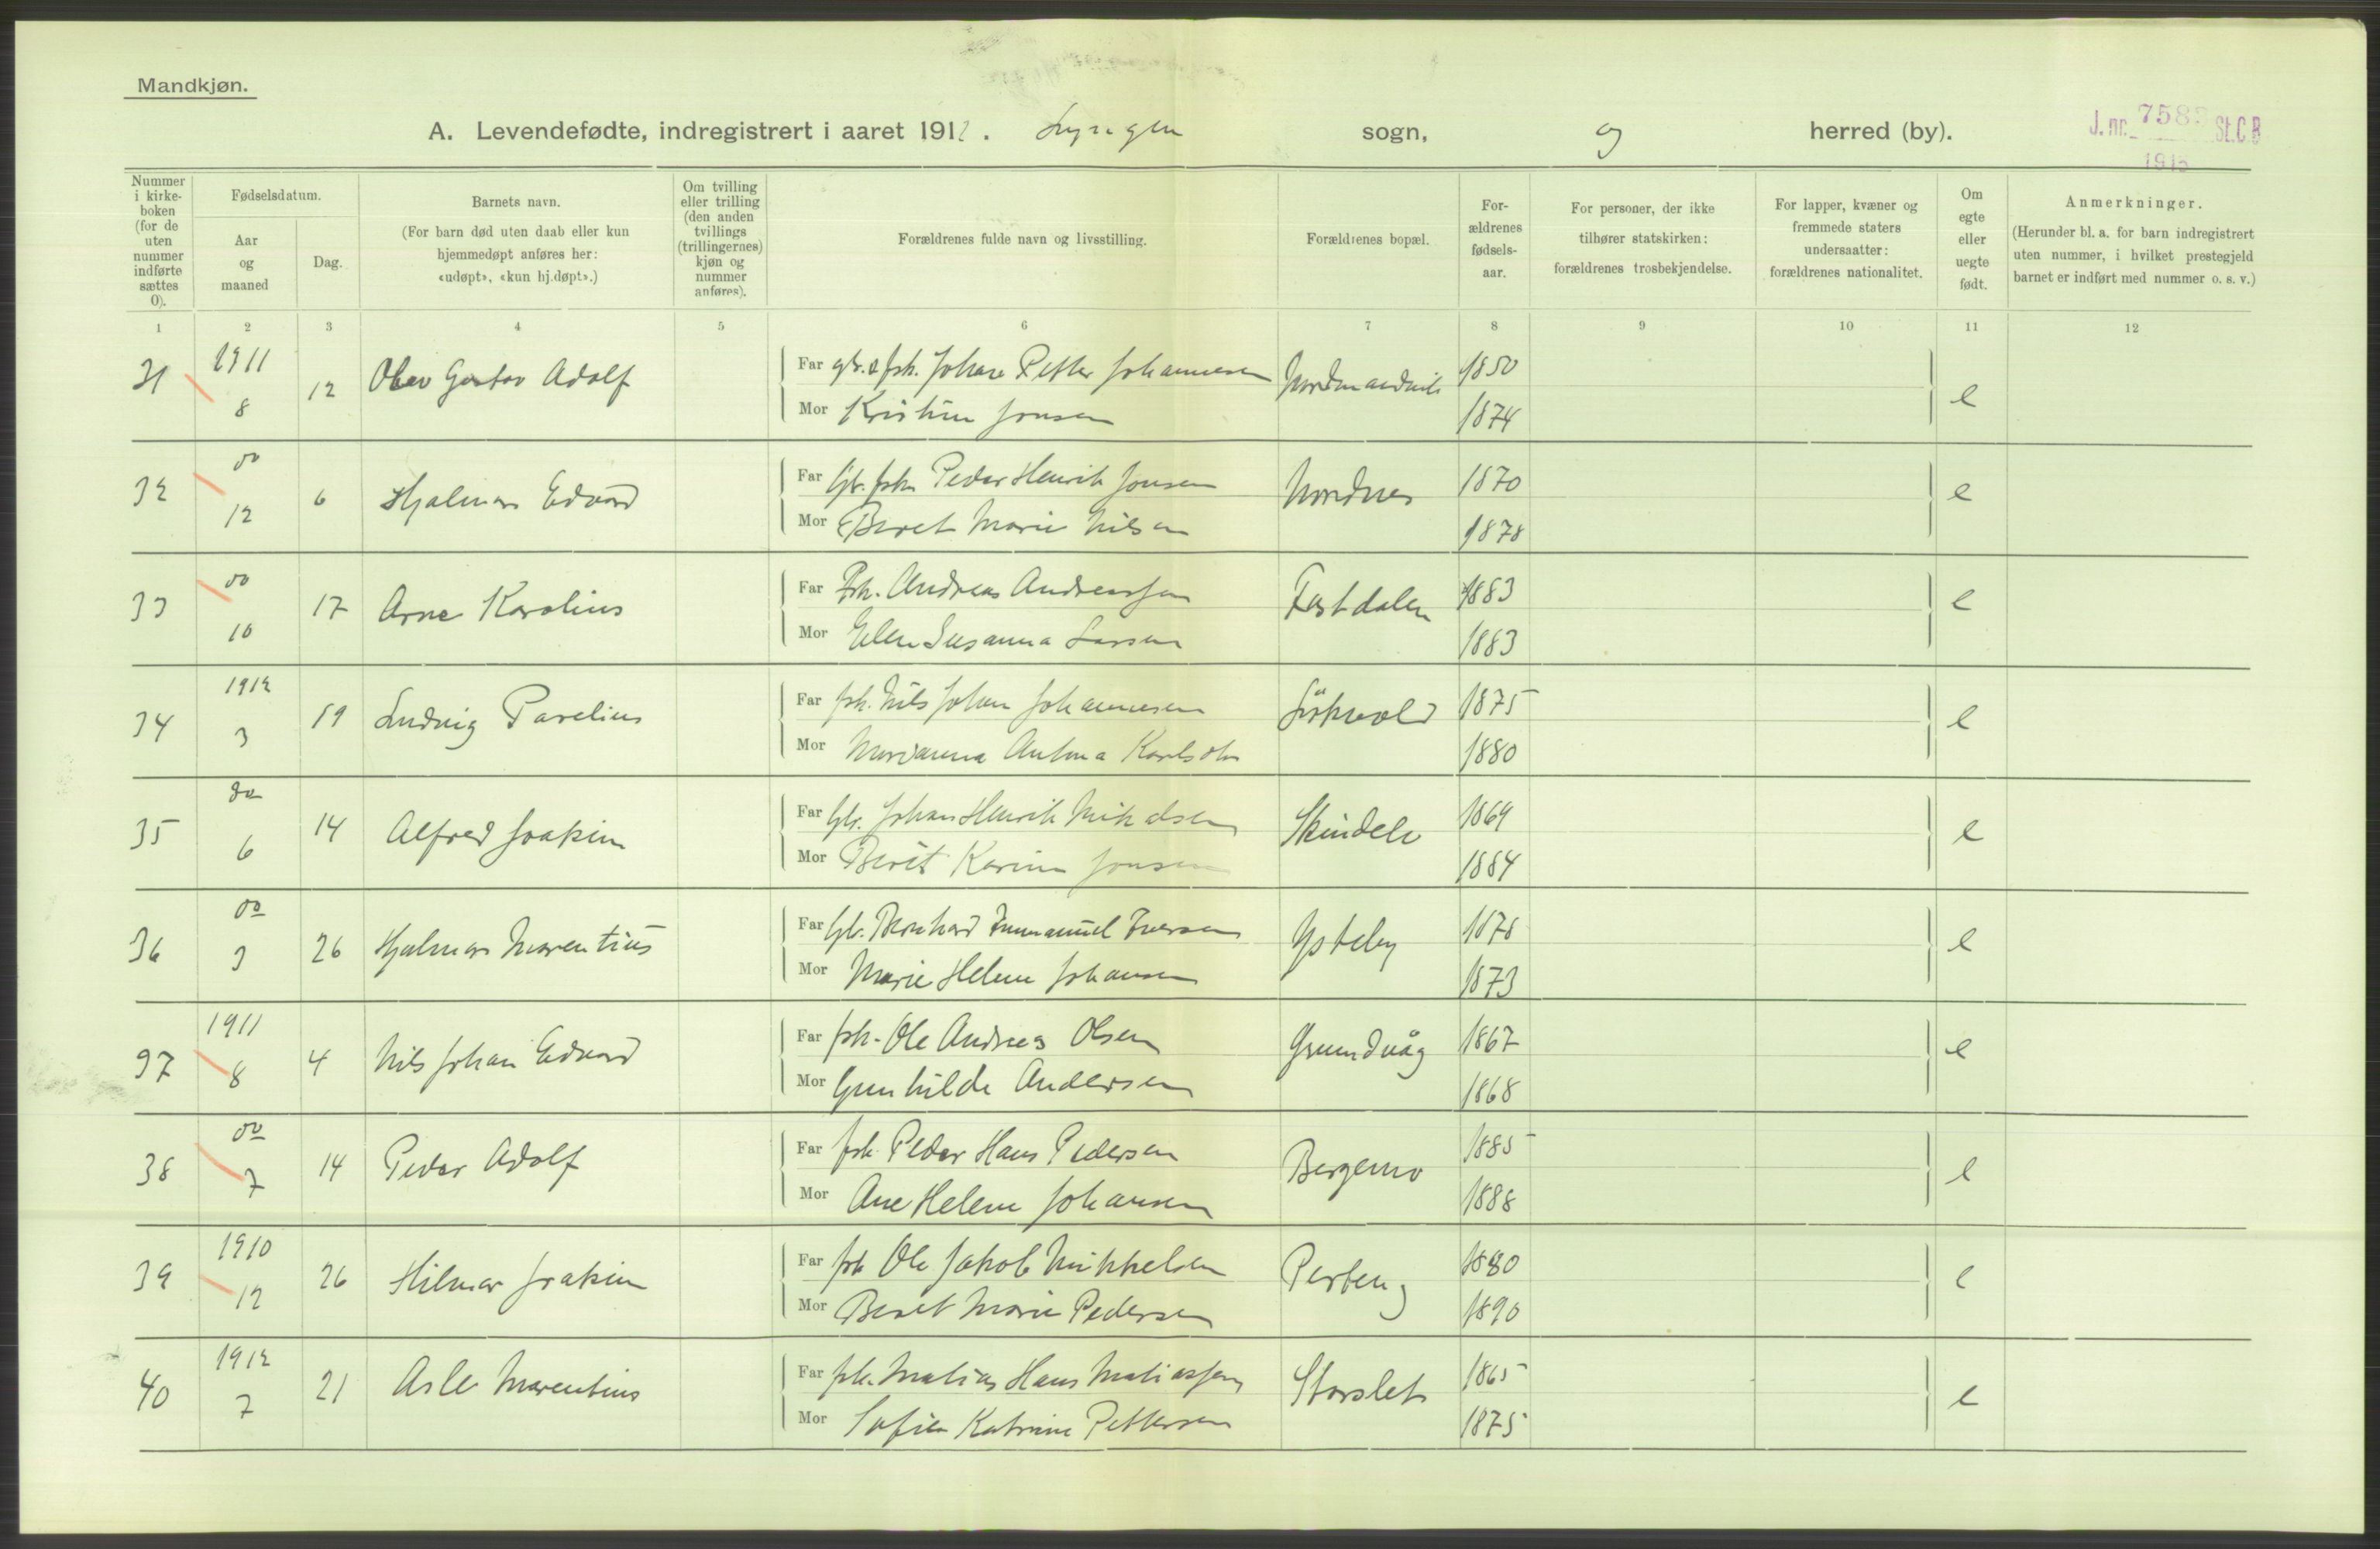 Mandkjøn.
A. Levendefødte, indregistrert i aaret 1912. Lyngen sogn, og herred (by).
J. nr. 758 St.C B
1913
Nummer i kirkeboken (for de uten nummer indførte sættes 0).
Fødselsdatum.
Aar og maaned
Dag.
Barnets navn.
(For barn død uten daab eller kun hjemmedøpt anføres her: «udøpt», «kun hj.døpt».)
Om tvilling eller trilling (den anden tvillings (trillingernes) kjøn og nummer anføres).
Forældrenes fulde navn og livsstilling.
Forældrenes bopæl.
Forældrenes fødselsaar.
For personer, der ikke tilhører statskirken: forældrenes trosbekjendelse.
For lapper, kvæner og fremmede staters undersaatter: forældrenes nationalitet.
Om egte eller uegte født.
Anmerkninger.
(Herunder bl. a. for barn indregistrert uten nummer, i hvilket prestegjeld barnet er indført med nummer o. s. v.)
1 2 3 4 5 6 7 8 9 10 11 12
31 1911 8 12 Olav Gustav Adolf Far gb. & fsk. Johan Petter Johannesen 1850 e
Mor Kristine Jonsen 1874
32 do 12 6 Hjalmar Edvard Far Gb. fsk Peder Henrik Jonsen Nordnes 1870 e
Mor Beret Marie Nilsen 1878
33 do 10 17 Arne Karolius Far Fsk. Andreas Andreassen 1883 e
Mor Elen Susanna Larsen 1883
34 1912 3 19 Ludvig Parelius Far fsk. Nils Johan Johannesen 1875 e
Mor Marianna Antona 1880
35 do 6 14 Alfred Joakim Far Gb. Johan Henrik Nikolsen 1869 e
Mor Berit Karine Jonsen 1884
36 do 3 26 Hjalmar Marentius Far Gb. Bernhard Emmanuel Iversen Ysteby 1878 e
Mor Marie Helene Johansen 1873
37 1911 8 4 Nils Johan Edvard Far fsk. Ole Andreas Olsen Grundvåg 1867 e
Mor Gunhilde Andersen 1868
38 do 7 14 Peder Adolf Far fsk Peder Hans Pedersen Bergemo 1885 e
Mor Ane Helene Johansen 1888
39 1910 12 26 Hilmar Joakim Far fsk Ole Jakob Mikkelsen 1880 e
Mor Beret Marie Pedersen 1890
40 1912 7 21 Asle Marentius Far fsk. Matias Hans Matiassen Storslet 1865 e
Mor Sofie Katrine Pettersen 1875